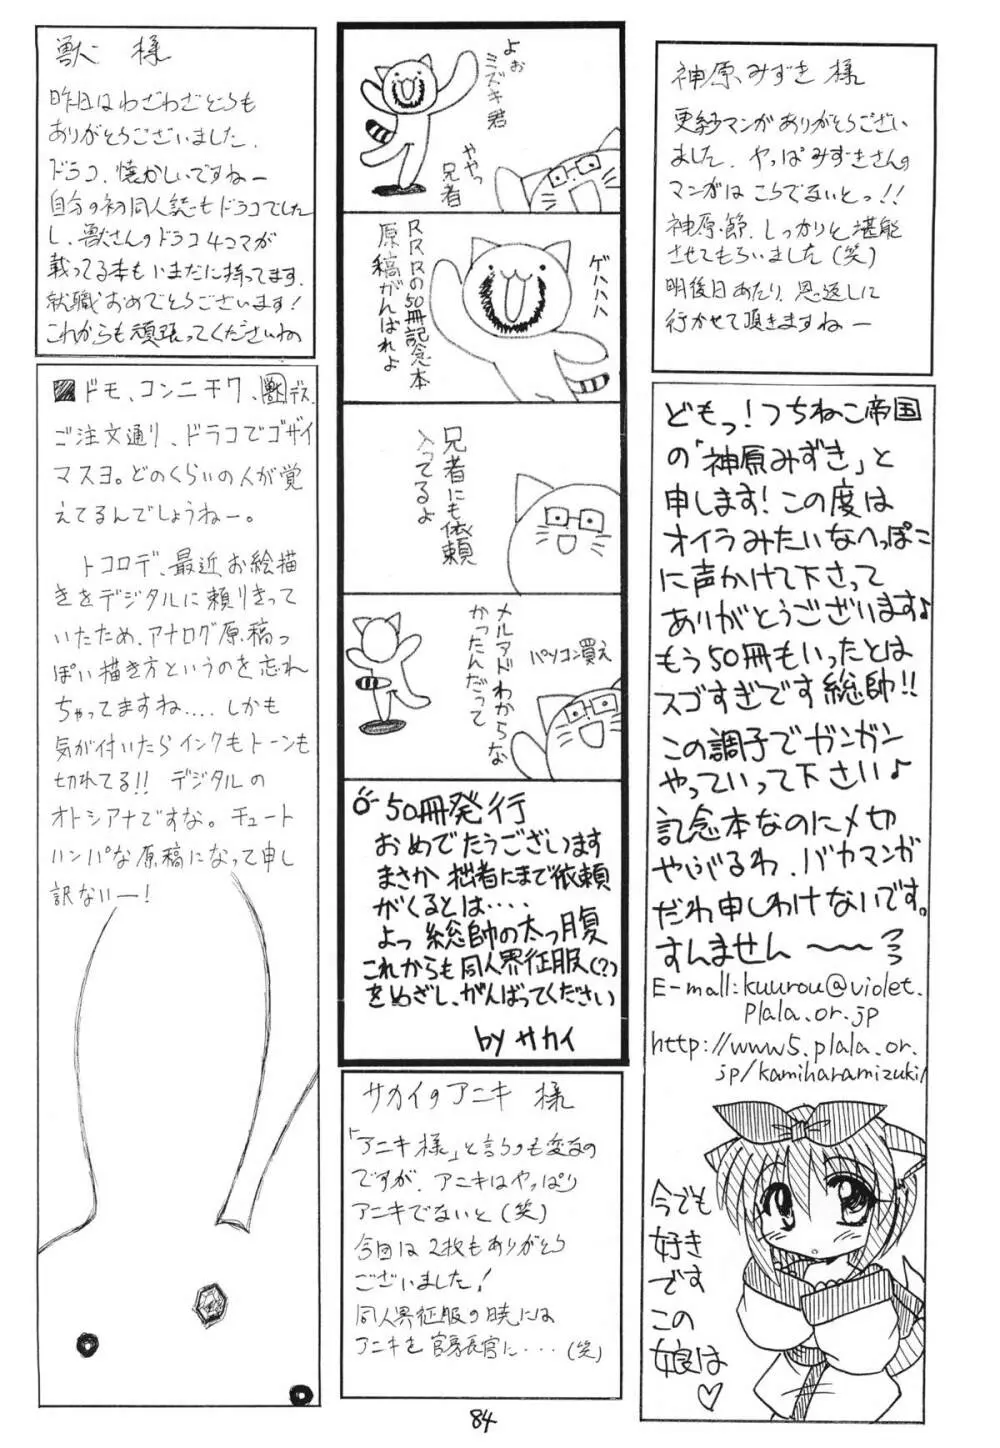 獣 様
昨日はわざわざどうも
ありがとうございました.
ドラコ、懐かしいですねー
自分の初同人誌もドラコでした
し、獣さんのドラコ4コマが
載ってる本もいまだに持ってます.
就職おめでとうございます!
これからも頑張ってくださいね
ドモ、コンニチワ、獣デス.
ご注文通り、ドラコでゴザイ
マスヨ。どのくらいの人が覚
えてるんでしょうねー。
トコロデ、最近、お絵描
きをデジタルに頼りきって
いたため、アナログ原稿っ
ぽい描き方というのを忘れ
ちゃってますね.... しかも
気が付いたらインクもトーンも
切れてる!! デジタルの
オトシアナですな。チュート
ハンパな原稿になって申し
訳ないー!
よぉ
ミズキ君
ややっ
兄者
RRRの50冊記念本
原稿がんばれよ
ゲハハハ
兄者にも依頼
入ってるよ
メルアドわからな
かったんだって
パソコン買え
50冊発行
おめでたうございます
まさか 拙者にまで依頼
がくるとは・・・・
よっ 総帥の太っ腹
これからも同人界征服(?)
をめざし、がんばってください
by サカイ
サカイのアニキ 様
「アニキ様」と言うのも変なの
ですが、アニキはやっぱり
アニキでないと(笑)
今回は2枚もありがとう
ございました!
同人界征服の暁には
アニキを官房長官に・・・(笑)
神原みずき 様
更紗マンガありがとうござい
ました. やっぱみずきさんの
マンガはこうでないとっ!!
神原節、しっかりと堪能
させてもらいました(笑)
明後日あたり、恩返しに
行かせて頂きますねー
どもっ!つちねこ帝国
の「神原みずき」と
申します!この度は
オイラみたいなへっぽこ
に声かけて下さって
ありがとうございます♪
もう50冊もいったとは
スゴすぎです総帥!!
この調子でガンガン
やっていって下さい♪
記念本なのにメ切
やぶるわ、バカマンガ
だわ申しわけないです。
すんません〜〜
E-mall:kuurou@violet.
plala.or.jp
http://www5.plala.or.
jp/kamiharamizuki/
今でも
好き
です
この
娘は
♡
84